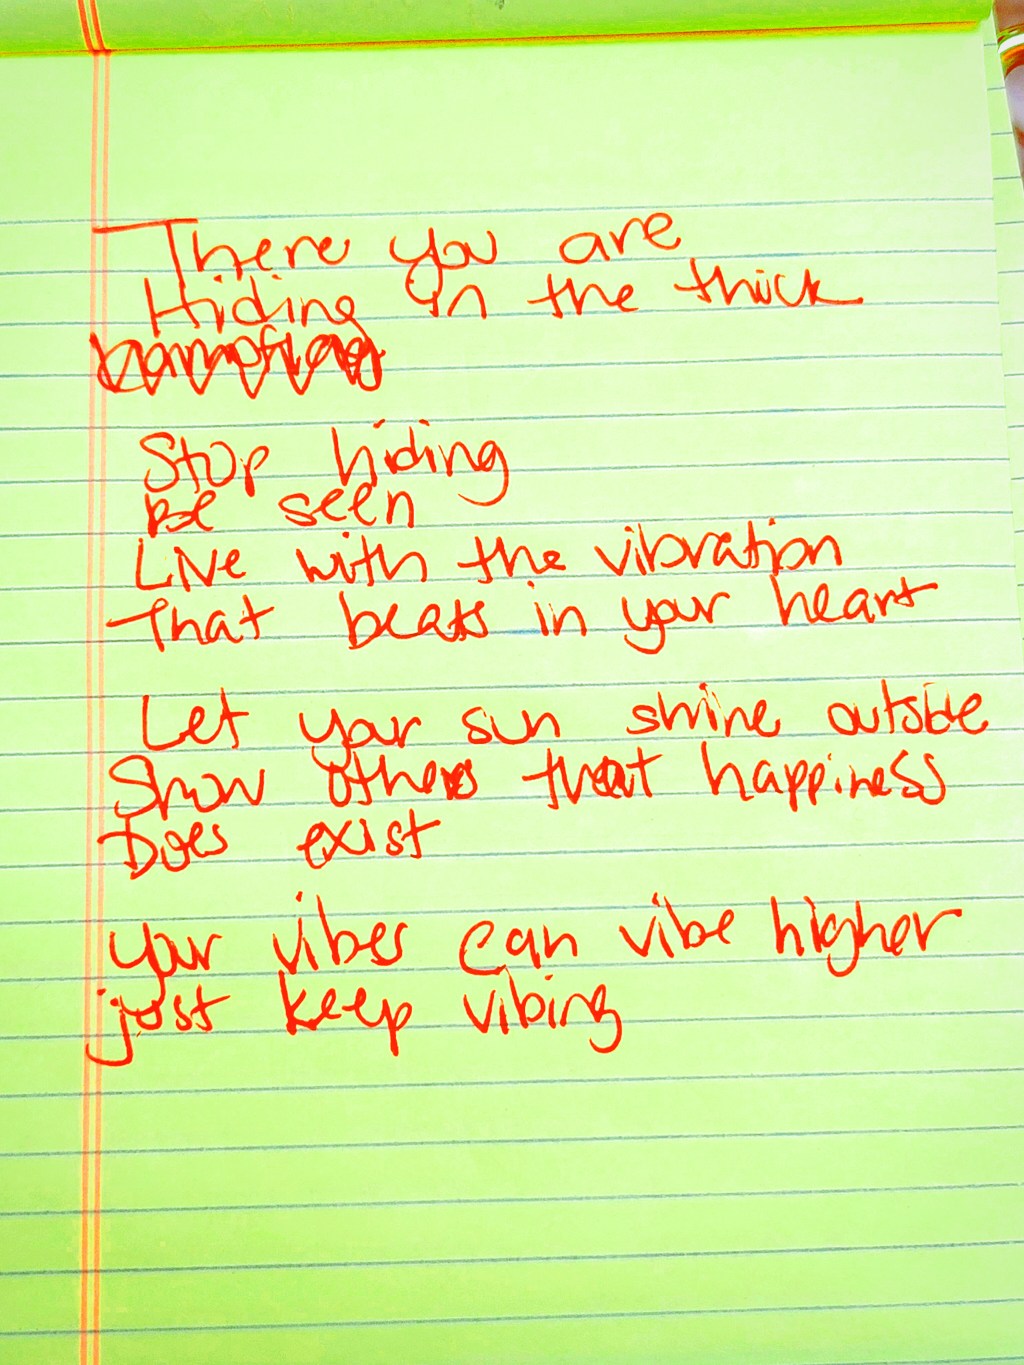 There you are
Hiding in the thick
Stop hiding
Be seen
Live with the vibration
That beats in your heart
Let your sun shine outside
Show others that happiness
Does exist
your vibes can vibe higher
just keep vibing